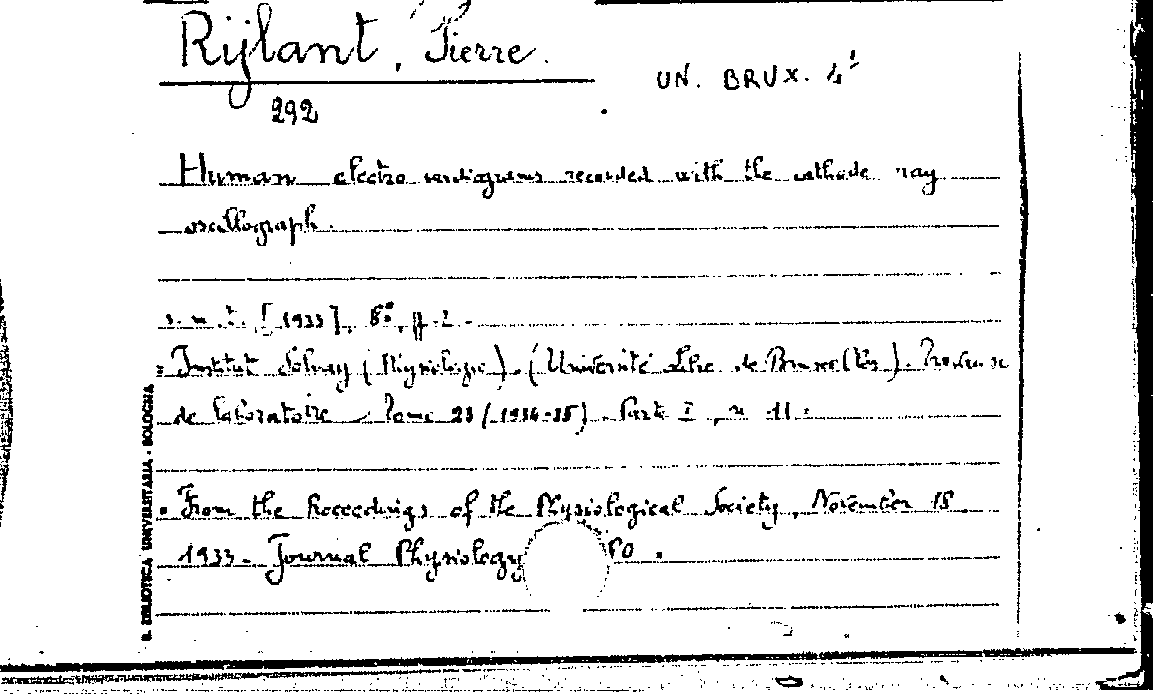 Rijlant, Pierre.
UN. BRUX. 4¹
292
Human electro cardiograms recorded with the cathode ray
oscillograph.
s. n. t. [1933], 8°, pp. 2.
= Institut Solvay (Physiologie). (Université Libre de Bruxelles). Travaux
de laboratoire. Tome 23 (1934-35). Part. I, n. 11.
= From the Proceedings of the Physiological Society, November 18.
1933. Journal Physiology 80.
R. BIBLIOTECA UNIVERSITARIA - BOLOGNA